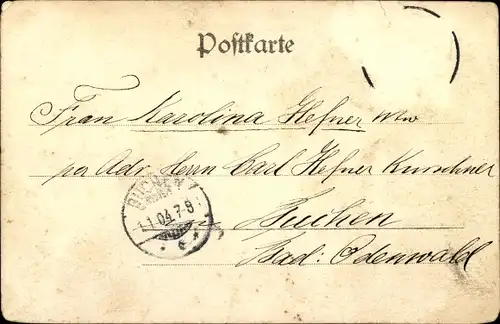 Postkarte
Frau Karolina Hefner Ww
per Adr. Herrn Carl Hefner Kürschner
BUCHEN
1.1.04.7-8
in Buchen
Bad: Odenwald